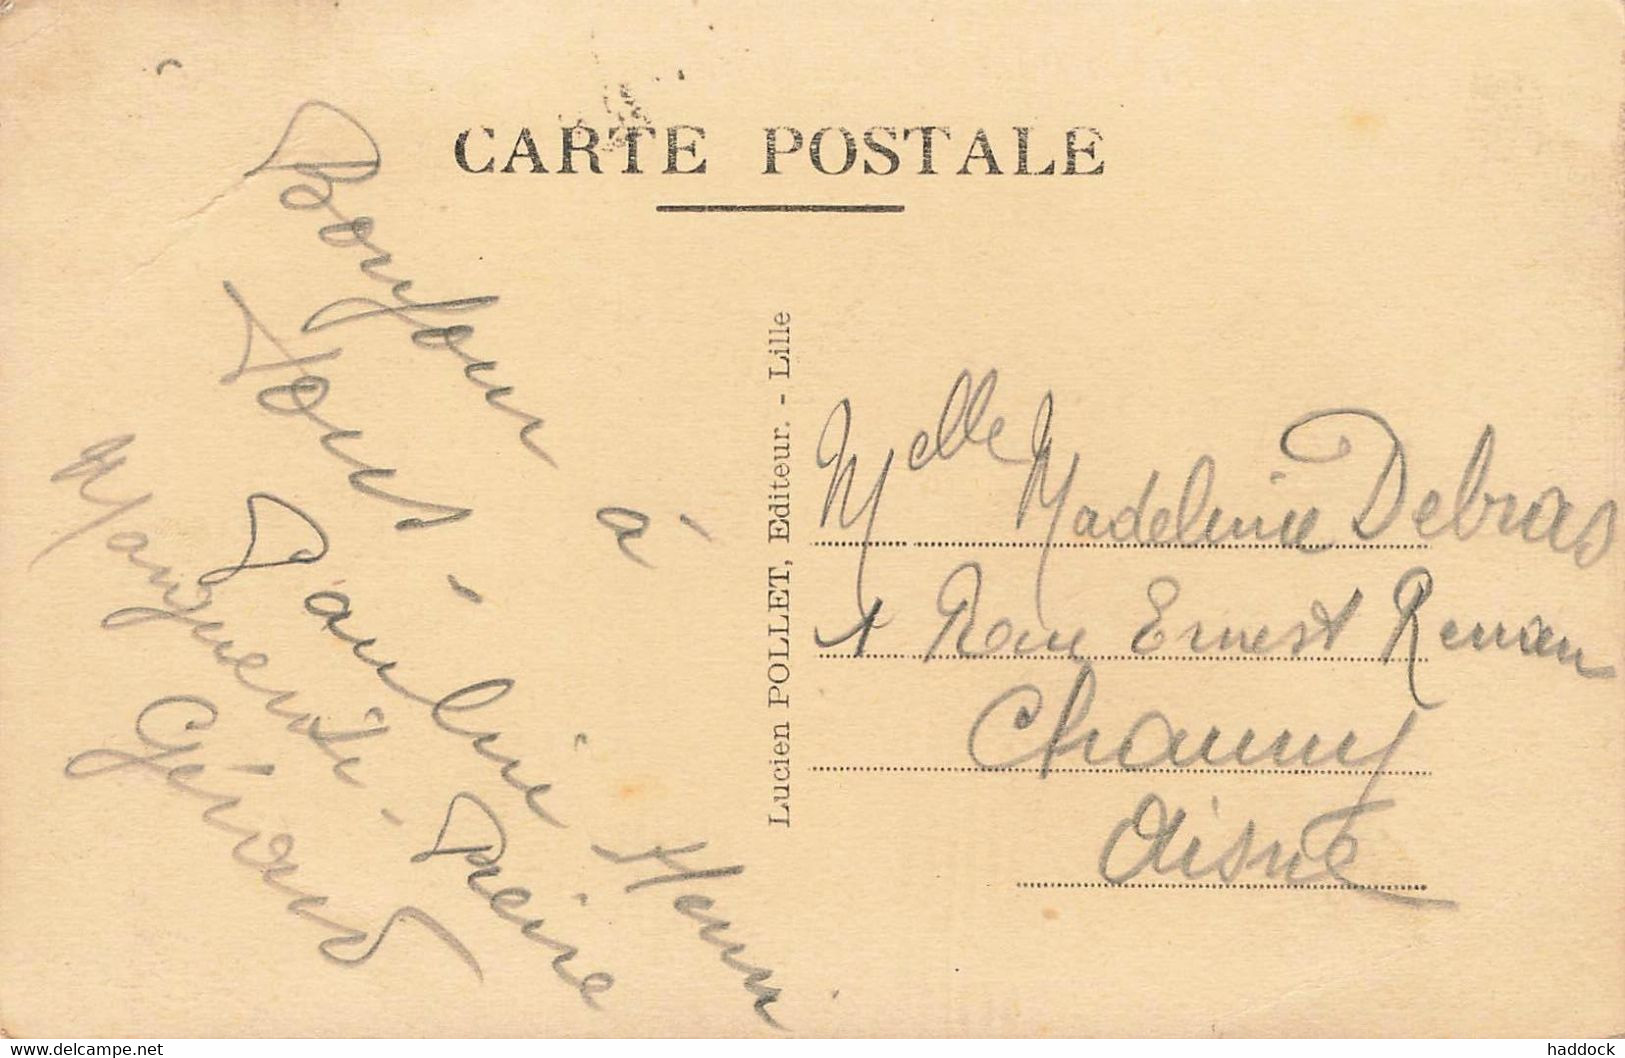 CARTE POSTALE
Bonjour à
tous -
Pauline Henri
Marguerite - Pierre
Gérard
Lucien POLLET, Editeur. - Lille
Melle Madeleine Debras
1 Rue Ernest Renan
Chauny
Aisne
www.delcampe.net
haddock